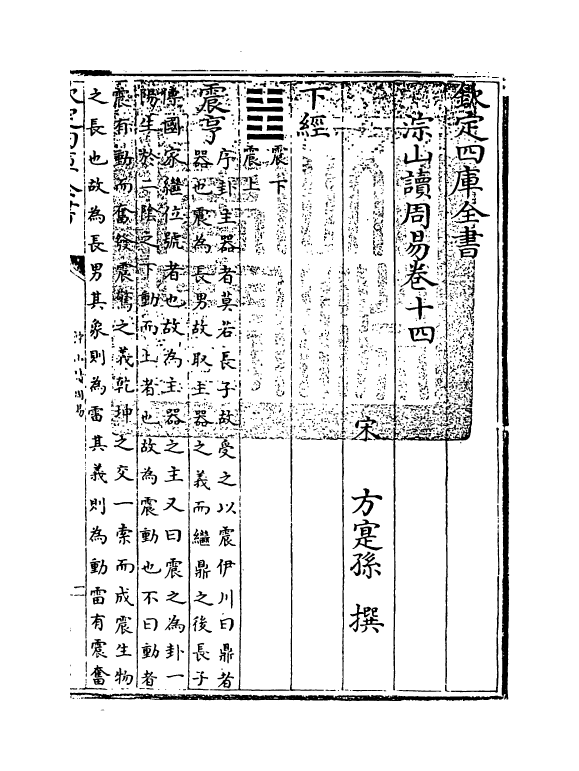 欽定四庫全書
淙山讀周易卷十四
宋 方寔孫 撰
下經
震下
震上
震亨
序卦主器者莫若長子故受之以震伊川曰鼎者
器也震為長男故取主器之義而繼鼎之後長子
傳國家繼位號者也故為主器之主又曰震之為卦一
陽生於二陰之下動而上者也故為震動也不曰動者
震有動而奮發震驚之義乾坤之交一索而成震生物
之長也故為長男其象則為雷其義則為動雷有震奮
欽定四庫全書